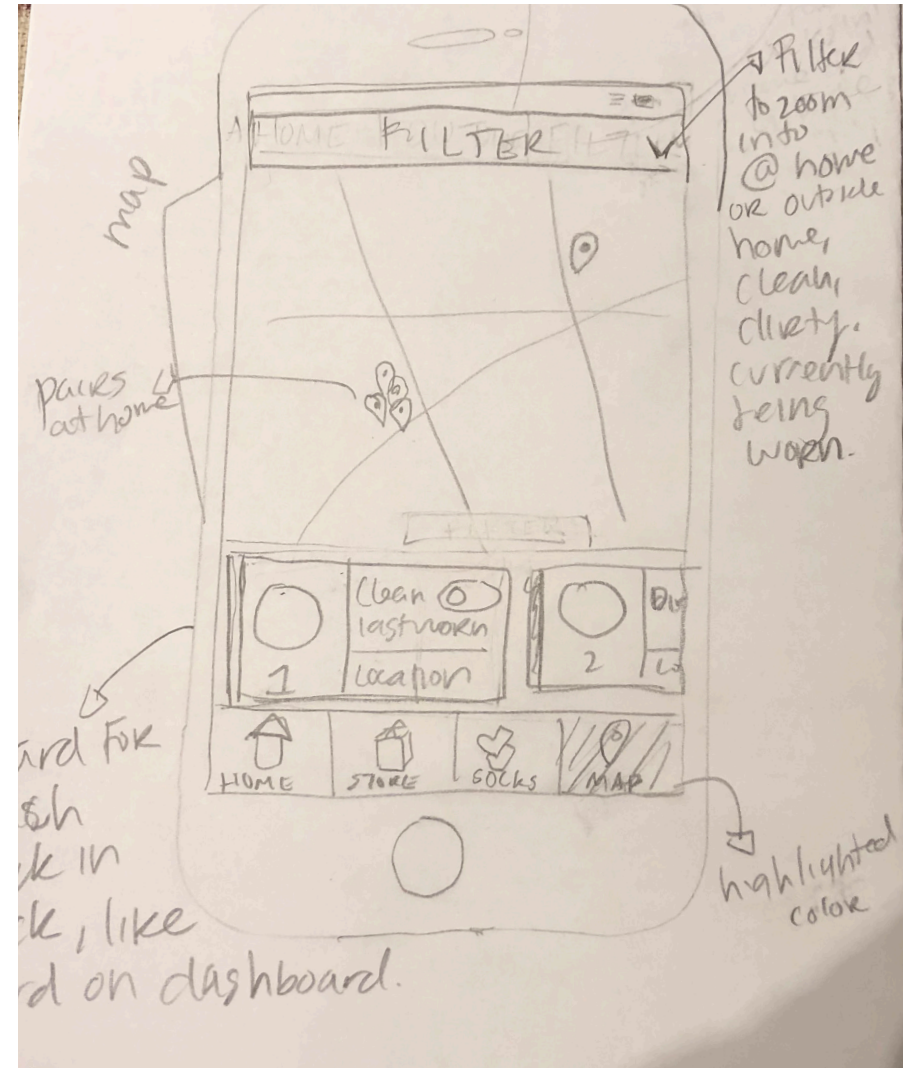 FILTER
map
pairs
at home
Filter
to zoom
into
@ home
or outside
home,
clean,
dirty,
currently
being
worn.
Clean
last worn
Location
1
2
HOME
STORE
SOCKS
MAP
highlighted
color
ard for
sh
ck in
ck, like
rd on dashboard.